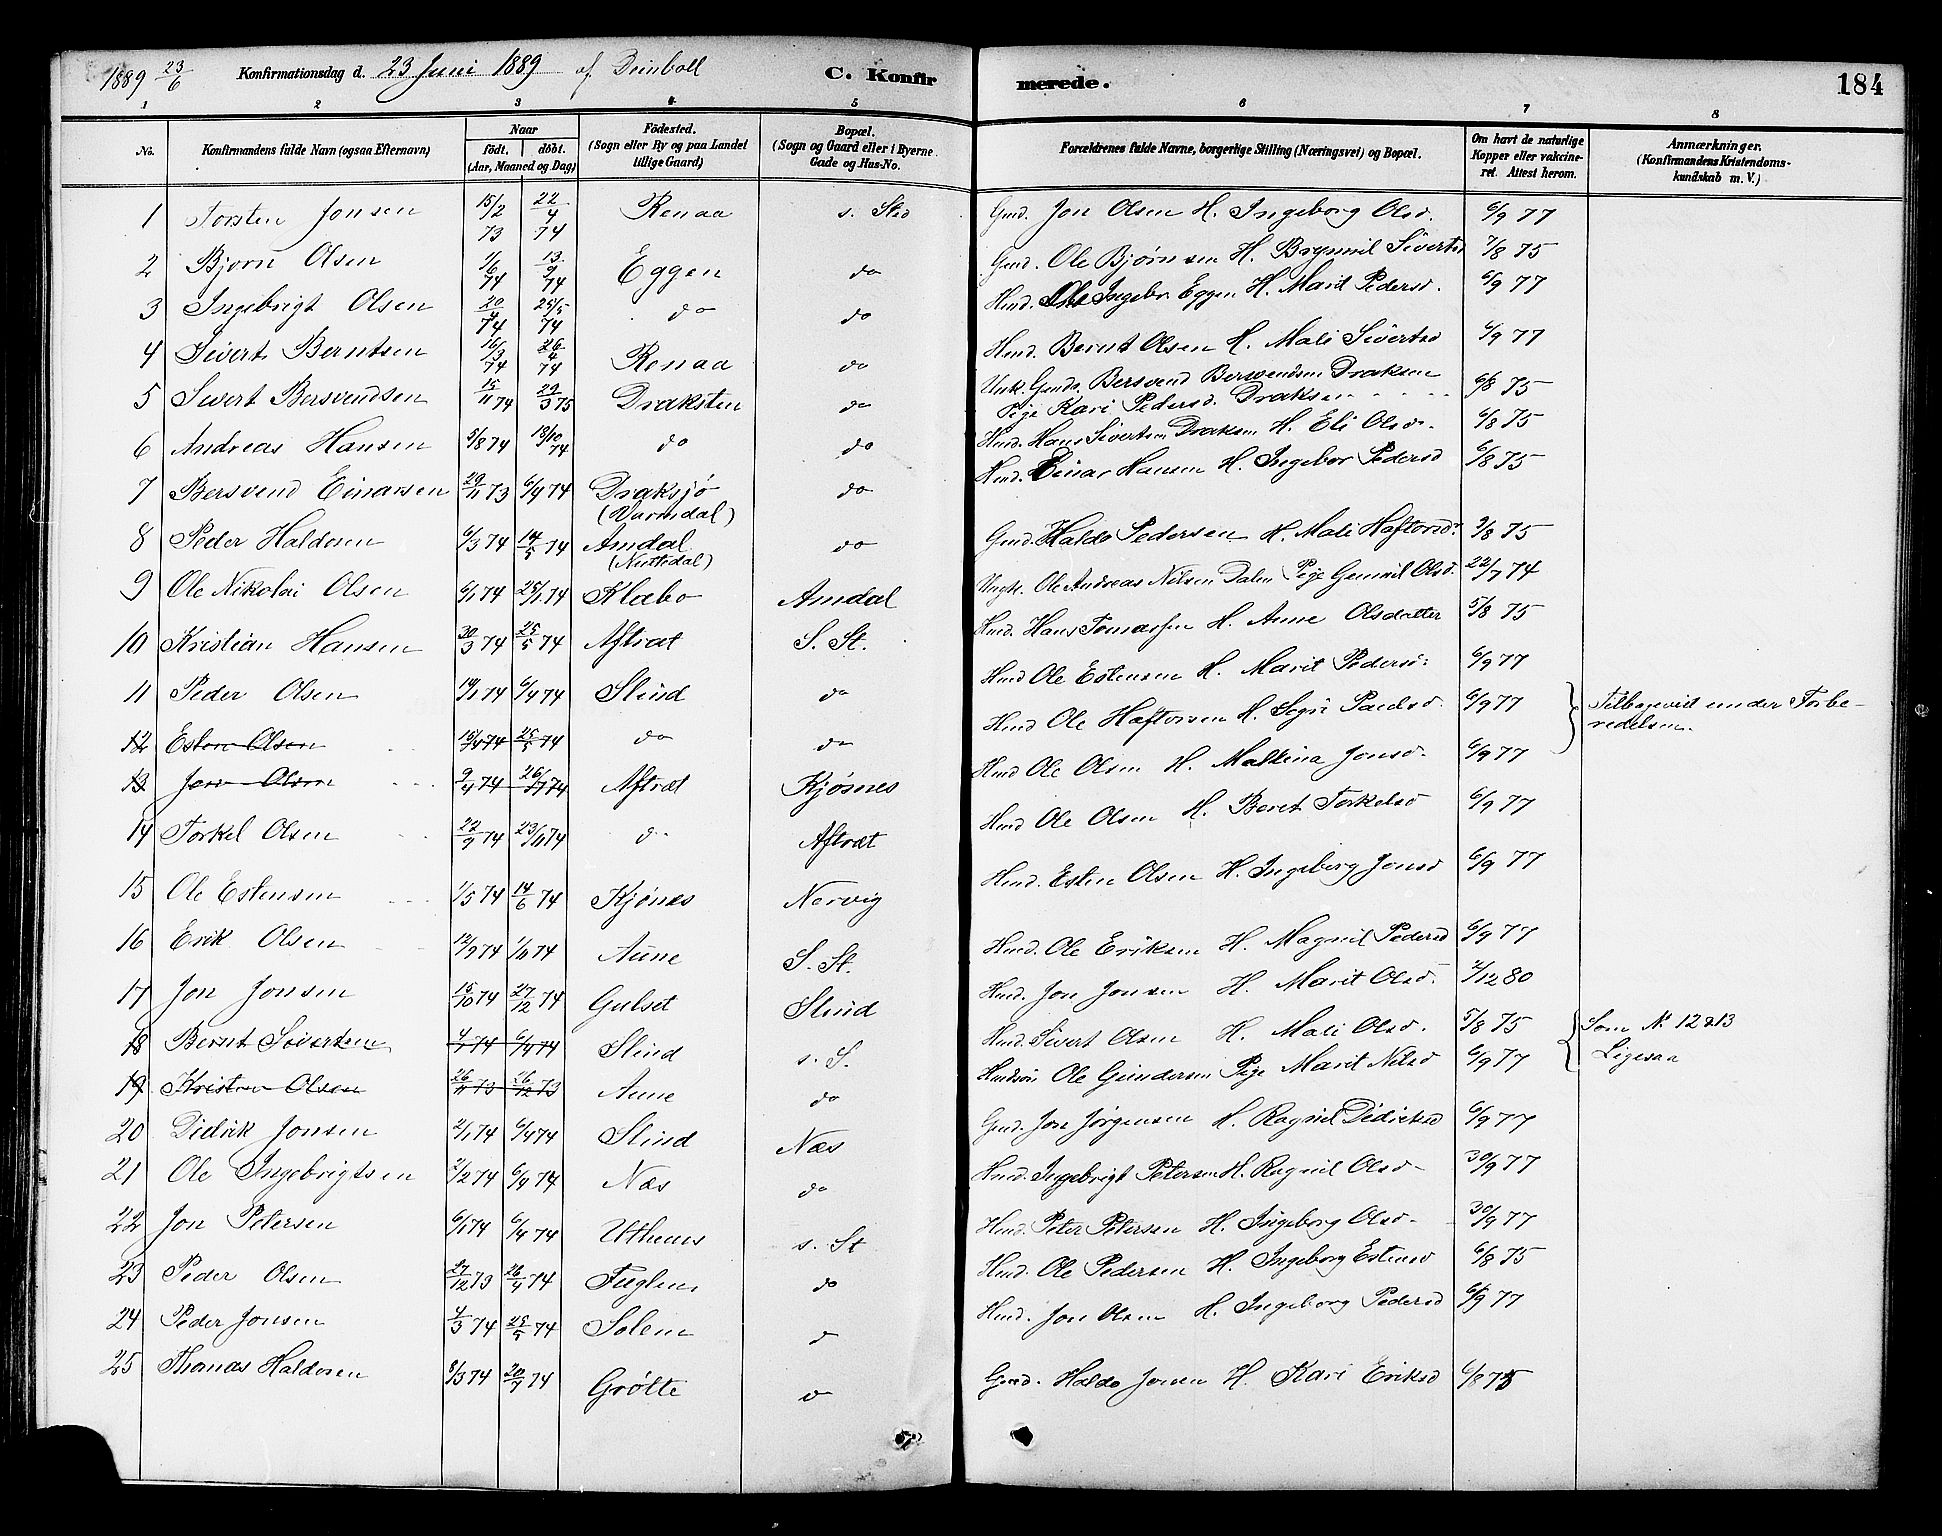 1889 23/6 Konfirmationsdag d. 23 Juni 1889 af C. Konfirmerede. 184
1 2 3 4 5 6 7 8
No. Konfirmandens fulde Navn (ogsaa Efternavn) Naar födt. döbt. (Aar, Maaned og Dag) Födested. (Sogn eller By og paa Landet tillige Gaard) Bopæl. (Sogn og Gaard eller i Byerne Gade og Hus-No. Forældrenes fulde Navne, borgerlige Stilling (Næringsvei) og Bopæl. Om havt de naturlige Kopper eller vakcineret. Attest herom. Anmærkninger. (Konfirmandens Kristendomskundskab m. V.)
1 Torsten Jonsen 15/2 73 22/4 74 Renaa s. Sted Gmd. Jon Olsen H. Ingeborg Olsd. 6/9 77
2 Bjørn Olsen 1/6 74 13/9 74 Eggen do Gmd. Ole Bjørnsen H. Brynnil Sivertsd 7/8 75
3 Ingebrigt Olsen 20/4 74 25/5 74 do do Hmd. Ole Ingebr. Eggen H. Marit Pedersd. 6/9 77
4 Sivert Berntsen 16/3 74 26/4 74 Renaa do Hmd. Bernt Olsen H. Mali Sivertsd 6/9 77
5 Sivert Bersvendsen 15/11 74 29/3 75 Draksten do Unk. Gmds. Bersvend Bersvendsen Draksen Pige Kari Pedersd. Draksen 6/8 75
6 Andreas Hansen 5/8 74 18/10 74 do do Hmd. Hans Sivertsen Draksen H. Eli Olsd. 6/8 75
7 Bersvend Einarsen 29/11 73 6/4 74 Draksjø (Varmdal) do Hmd. Einar Hansen H. Ingebor Pedersd 6/8 75
8 Peder Haldosen 6/3 74 14/5 74 Amdal do Gmd. Haldo Pedersen H. Mali Haftorsdr 9/8 75
9 Ole Nikolai Olsen 6/1 74 25/1 74 Klæbo Amdal Ungk. Ole Andreas Nilsen Dalen Pige Gunnil Olsd. 22/7 74
10 Kristian Hansen 30/3 74 25/5 74 Aftræt S. St. Hmd. Hans Tomassen H. Anne Olsdatter 5/8 75
11 Peder Olsen 19/1 74 6/4 74 Slind do Hmd Ole Estensen H. Marit Pedersd: 6/9 77
12 Esten Olsen 15/4 74 25/5 74 do do Hmd Ole Haftorsen H. Segri Paulsd 6/9 77 Tilbagevist under Forberedelsen.
13 Jon Olsen 9/4 74 26/7 74 Aftræt Kjøsnes Hmd Ole Olsen H. Malena Jonsd. 6/9 77
14 Torkel Olsen 22/9 74 23/11 74 do Aftræt Hmd Ole Olsen H. Beret Torkelsd 6/9 77
15 Ole Estensen 1/5 74 14/6 74 Kjønes Nervig Hmd. Esten Olsen H. Ingeborg Jonsd 6/9 77
16 Erik Olsen 12/9 74 1/11 74 Aune S. St. Hmd. Ole Eriksen H. Magnil Pedersd 6/9 77
17 Jon Jonsen 15/10 74 27/12 74 Gulset Slind Hmd. Jon Jonsen H. Marit Olsd. 2/12 80
18 Bernt Sivertsen 4/1 74 6/4 74 Slind s. S. Hmd. Sivert Olsen H. Mali Olsd. 5/8 75 Som N. 12 & 13 Ligesaa
19 Kristen Olsen 26/11 73 26/12 73 Aune do Hmdsøn Ole Gundersen Pige Marit Nilsd 6/9 77
20 Didrik Jonsen 2/1 74 6/4 74 Slind Næs Gmd. Jon Jørgensen H. Ragnil Didriksd 6/9 77
21 Ole Ingebrigtsen 2/2 74 6/4 74 Næs do Hmd. Ingebrigt Petersen H. Ragnil Olsd. 30/9 77
22 Jon Petersen 6/1 74 6/4 74 Uthuus s. St Hmd. Peter Petersen H. Ingeborg Olsd. 30/9 77
23 Peder Olsen 27/12 73 26/4 74 Fuglem do Hmd. Ole Pedersen H. Ingeborg Estensd 6/8 75
24 Peder Jonsen 4/3 74 25/5 74 Solem d Hmd. Jon Olsen H. Ingeborg Pedersd 6/9 77
25 Thomas Haldosen 8/3 74 20/4 74 Grøtte d Gmd. Haldo Jonsen H. Kari Eriksd 6/8 75